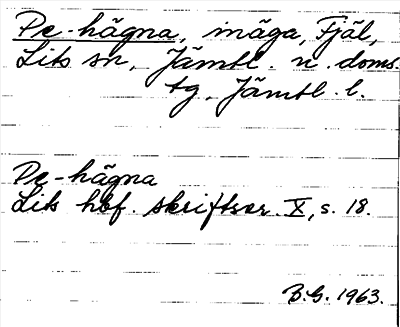 Pe-hägna, inäga, Fjäl,
Lits sn, Jämtl. n. doms.
tg, Jämtl. l.
Pe-hägna
Lits hbf. skriftser. X, s. 18.
B.G. 1963.